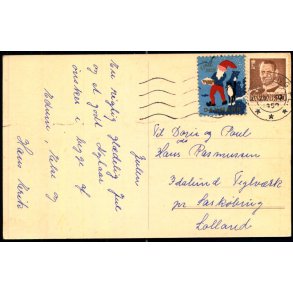 Julen
En rigtig glædelig Jul
og et godt Nytaar
ønskes i begge af
Edvin, Ketse og
Hans Henrik
Til Doris og Paul
Hans Rasmussen
Idalund Teglværk
pr Sakskøbing
Lolland